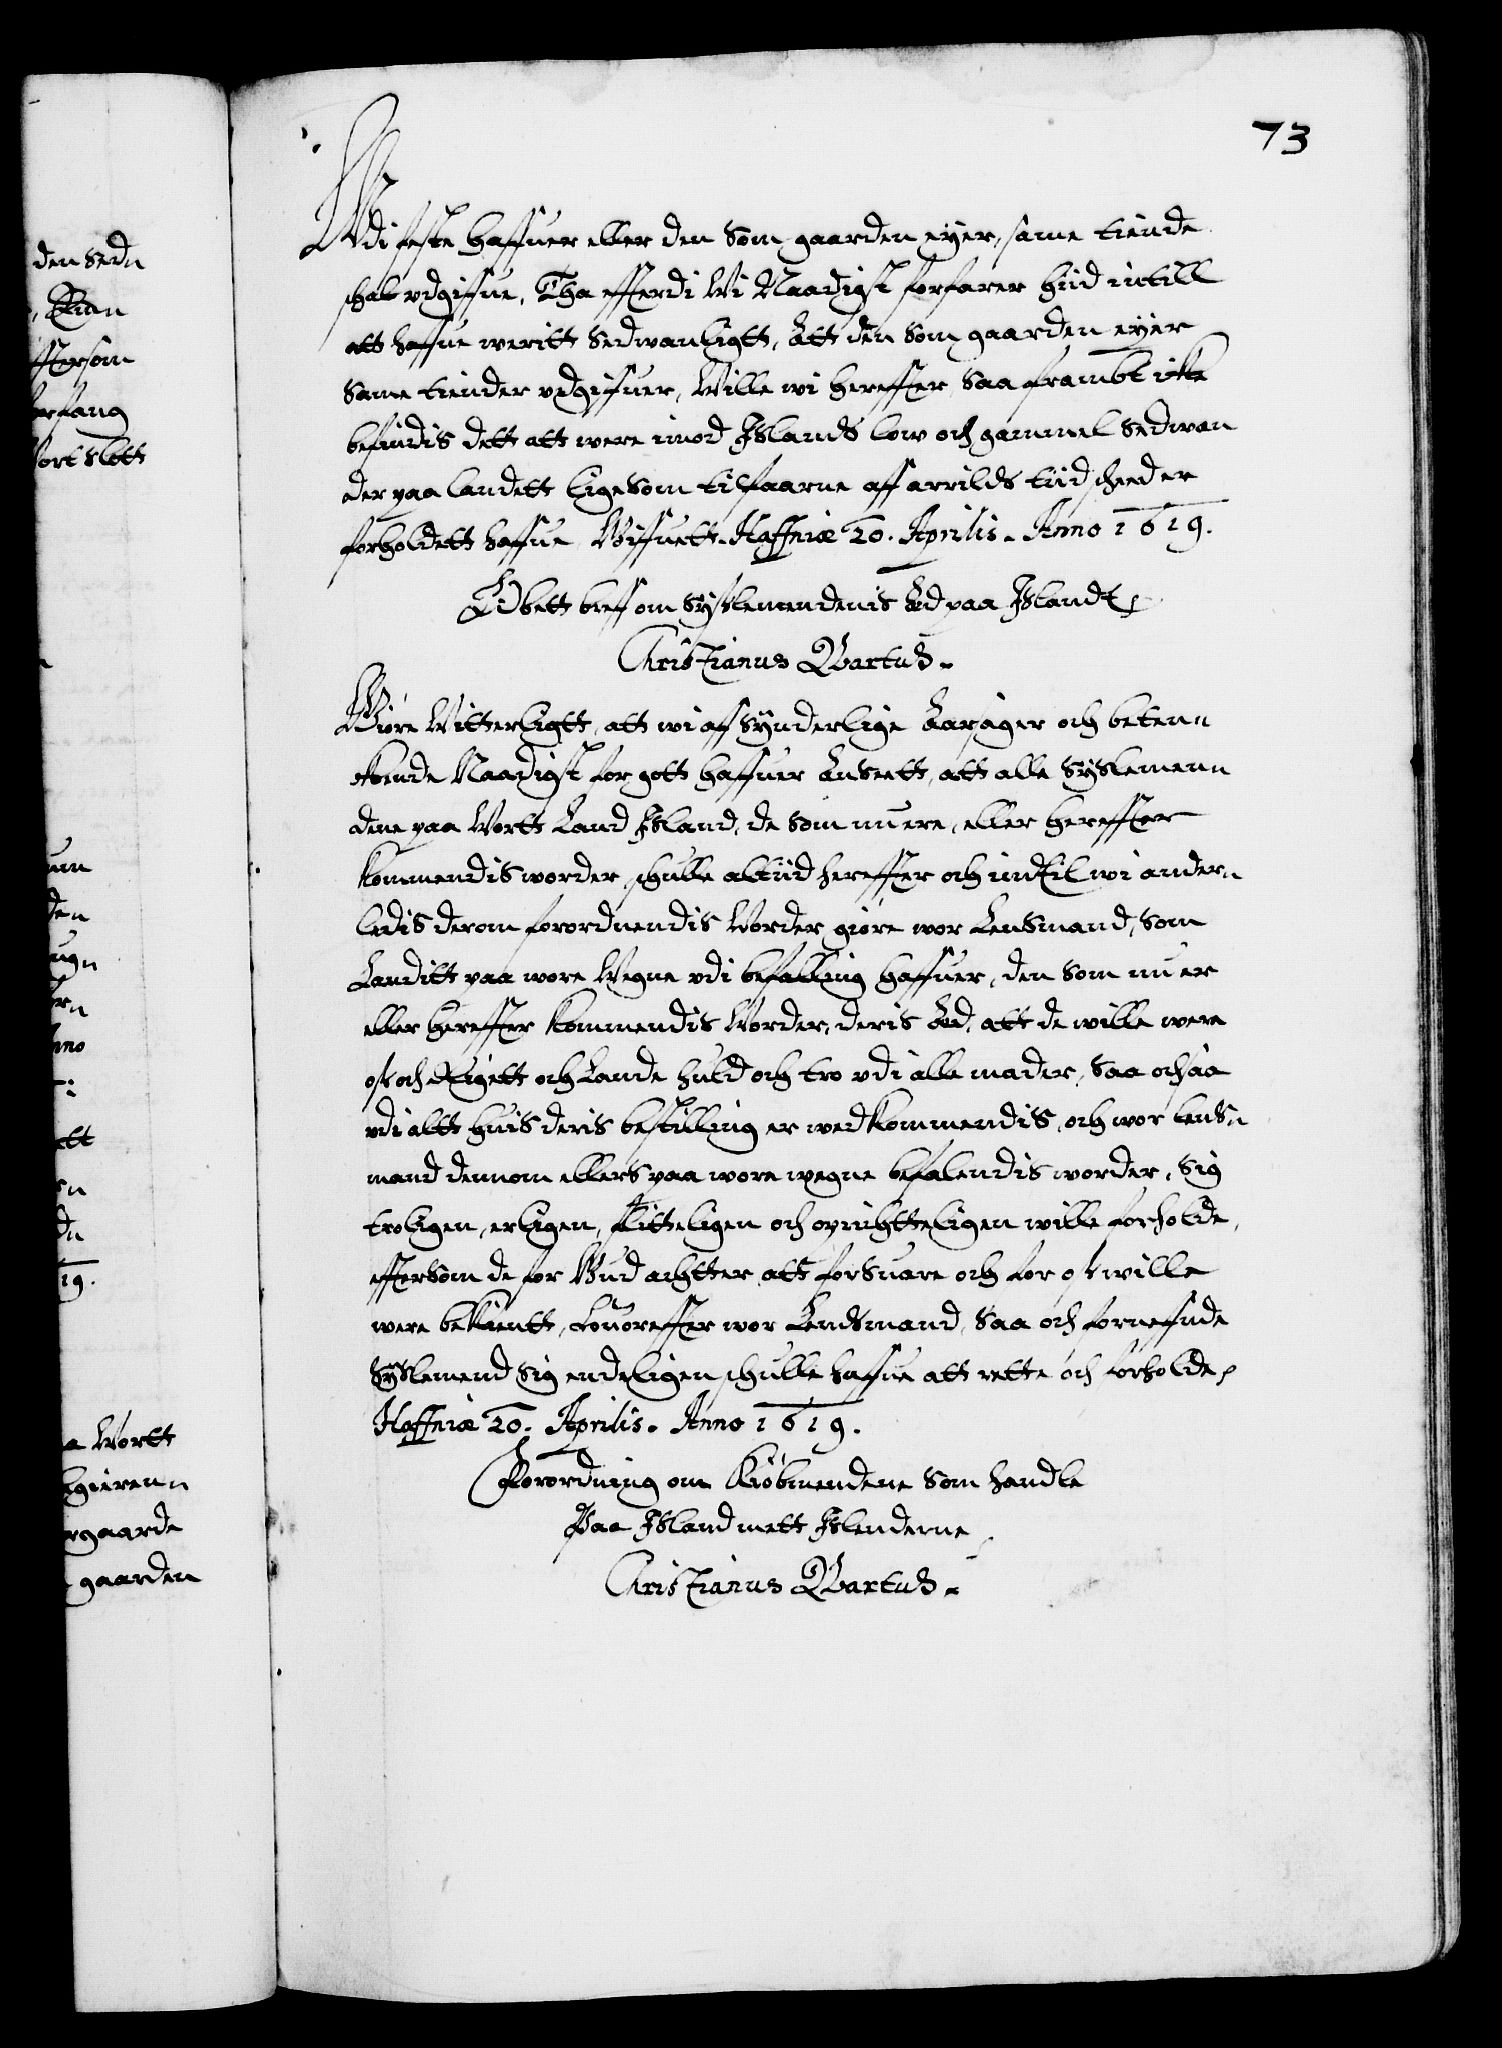 73
Udi feste haffuer eller den Som gaarden eyer, same tiende
schal udgiffue, Tha effterdi Wi Naadigst forfarer hiid indtill
att haffue weritt Sedwanligtt, Att den som gaarden eyer
Same tiender udgiffuer, Wille wi hereffter Saa frambt icke
befindis dett att were imod Islands low och gammel Sedwan
der paa landett lige Som tilfaarne aff arrilds tiid scheed er
forholdett haffue Giffuett. Haffniæ 20. Aprilis. Anno 1619.
Obett breff om Syslemendenis Eed paa Islandt,
Christianus Quartus.
Giøre Witterligtt, att wi aff Synderlige Aarsager och beten
ckende Naadigst for gott haffuer Anseett, att alle Syslemenn
dene paa Wortt Land Island, de Som nu ere, eller hereffter
kommendis worder schulle altiid hereffter och indtil wi ander
ledis derom forordnendis Worder giøre wor Lensmand, Som
Landitt paa wore Wegne udi befalling haffuer, den Som nu er
eller hereffter kommendis Worder, deris Eed, att de wille were
oss och Rigett och Lande huld och tro udi alle mader, Saa och saa
udi altt huis deris bestilling er wedkommendis, och wor lens
mand dennom ellers paa wore wegne befalendis worder, Sig
troligen, erligen, flitteligen och oprichtteligen wille forholde,
effterSom de for Gud achtter att forsuare och for oss wille
were bekientt, huoreffter wor Lendsmand, Saa och forneffnde
Syslemend Sig endeligen schulle haffue att rette och forholde,
Haffniæ 20. Aprilis. Anno 1619.
Forordning om Kiøbmendene Som handle
Paa Island mett Islenderne
Christianus Quartus.
den Sedn
ffterSom
forfang
Wort Slott
Anno
19.
Wortt
gaarde
gaarden